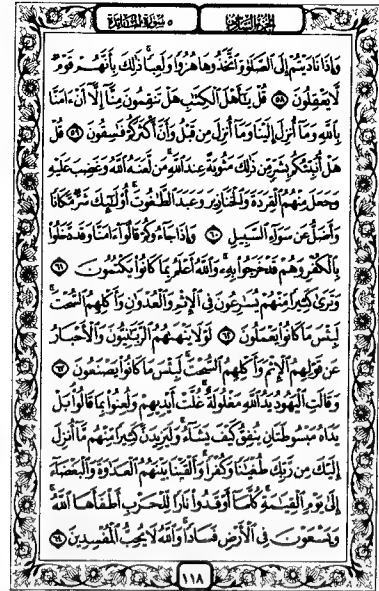 الجزء السادس ٥ سورة المائدة
وَإِذَا نَادَيْتُمْ إِلَى ٱلصَّلَوٰةِ ٱتَّخَذُوهَا هُزُوًا وَلَعِبًا ذَٰلِكَ بِأَنَّهُمْ قَوْمٌ
لَّا يَعْقِلُونَ ٥٨ قُلْ يَٰٓأَهْلَ ٱلْكِتَٰبِ هَلْ تَنقِمُونَ مِنَّآ إِلَّآ أَنْ ءَامَنَّا
بِٱللَّهِ وَمَآ أُنزِلَ إِلَيْنَا وَمَآ أُنزِلَ مِن قَبْلُ وَأَنَّ أَكْثَرَكُمْ فَٰسِقُونَ ٥٩ قُلْ
هَلْ أُنَبِّئُكُم بِشَرٍّ مِّن ذَٰلِكَ مَثُوبَةً عِندَ ٱللَّهِ مَن لَّعَنَهُ ٱللَّهُ وَغَضِبَ عَلَيْهِ
وَجَعَلَ مِنْهُمُ ٱلْقِرَدَةَ وَٱلْخَنَازِيرَ وَعَبَدَ ٱلطَّٰغُوتَ أُو۟لَٰٓئِكَ شَرٌّ مَّكَانًا
وَأَضَلُّ عَن سَوَآءِ ٱلسَّبِيلِ ٦٠ وَإِذَا جَآءُوكُمْ قَالُوٓا۟ ءَامَنَّا وَقَد دَّخَلُوا۟
بِٱلْكُفْرِ وَهُمْ قَدْ خَرَجُوا۟ بِهِۦ وَٱللَّهُ أَعْلَمُ بِمَا كَانُوا۟ يَكْتُمُونَ ٦١
وَتَرَىٰ كَثِيرًا مِّنْهُمْ يُسَٰرِعُونَ فِى ٱلْإِثْمِ وَٱلْعُدْوَٰنِ وَأَكْلِهِمُ ٱلسُّحْتَ
لَبِئْسَ مَا كَانُوا۟ يَعْمَلُونَ ٦٢ لَوْلَا يَنْهَىٰهُمُ ٱلرَّبَّٰنِيُّونَ وَٱلْأَحْبَارُ
عَن قَوْلِهِمُ ٱلْإِثْمَ وَأَكْلِهِمُ ٱلسُّحْتَ لَبِئْسَ مَا كَانُوا۟ يَصْنَعُونَ ٦٣
وَقَالَتِ ٱلْيَهُودُ يَدُ ٱللَّهِ مَغْلُولَةٌ غُلَّتْ أَيْدِيهِمْ وَلُعِنُوا۟ بِمَا قَالُوا۟ بَلْ
يَدَاهُ مَبْسُوطَتَانِ يُنفِقُ كَيْفَ يَشَآءُ وَلَيَزِيدَنَّ كَثِيرًا مِّنْهُم مَّآ أُنزِلَ
إِلَيْكَ مِن رَّبِّكَ طُغْيَٰنًا وَكُفْرًا وَأَلْقَيْنَا بَيْنَهُمُ ٱلْعَدَٰوَةَ وَٱلْبَغْضَآءَ
إِلَىٰ يَوْمِ ٱلْقِيَٰمَةِ كُلَّمَآ أَوْقَدُوا۟ نَارًا لِّلْحَرْبِ أَطْفَأَهَا ٱللَّهُ
وَيَسْعَوْنَ فِى ٱلْأَرْضِ فَسَادًا وَٱللَّهُ لَا يُحِبُّ ٱلْمُفْسِدِينَ ٦٤
١١٨